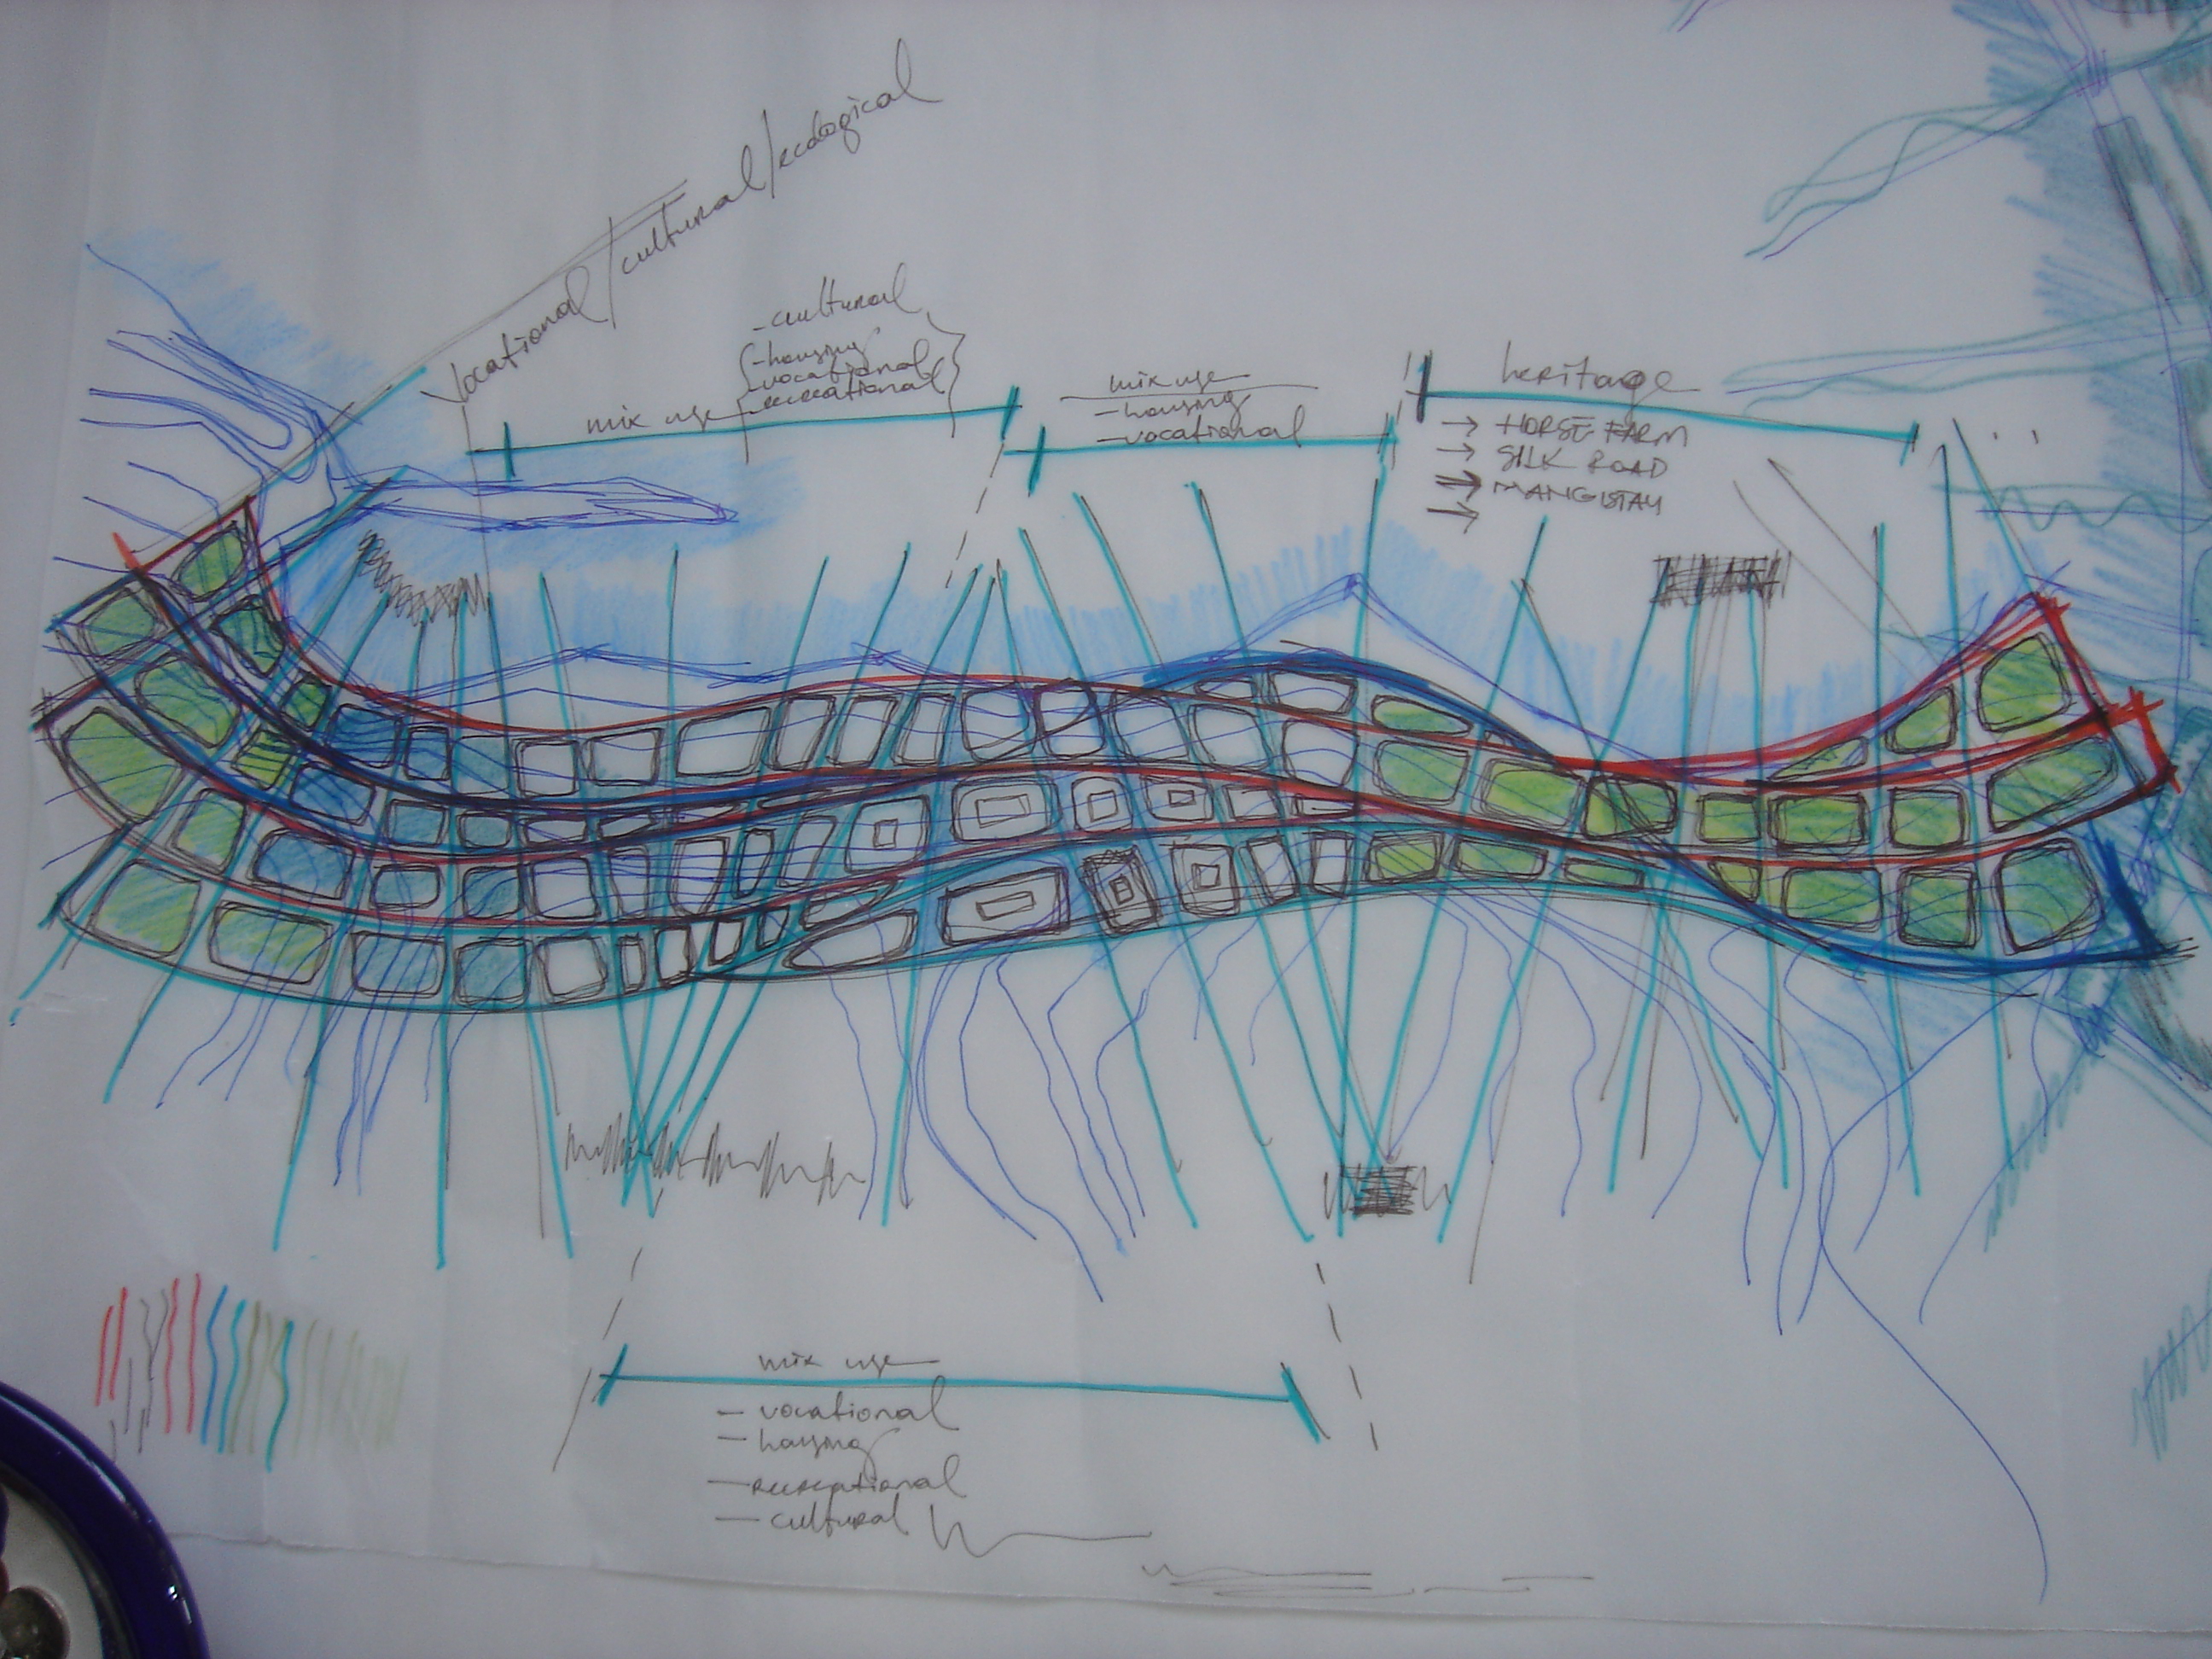 vocational/cultural/ecological
- cultural
- housing
vocational
recreational
mix use
mix use
- housing
- vocational
heritage
→ HORSE FARM
→ SILK ROAD
→ MANGISTAY
→
mix use
- vocational
- housing
- recreational
- cultural